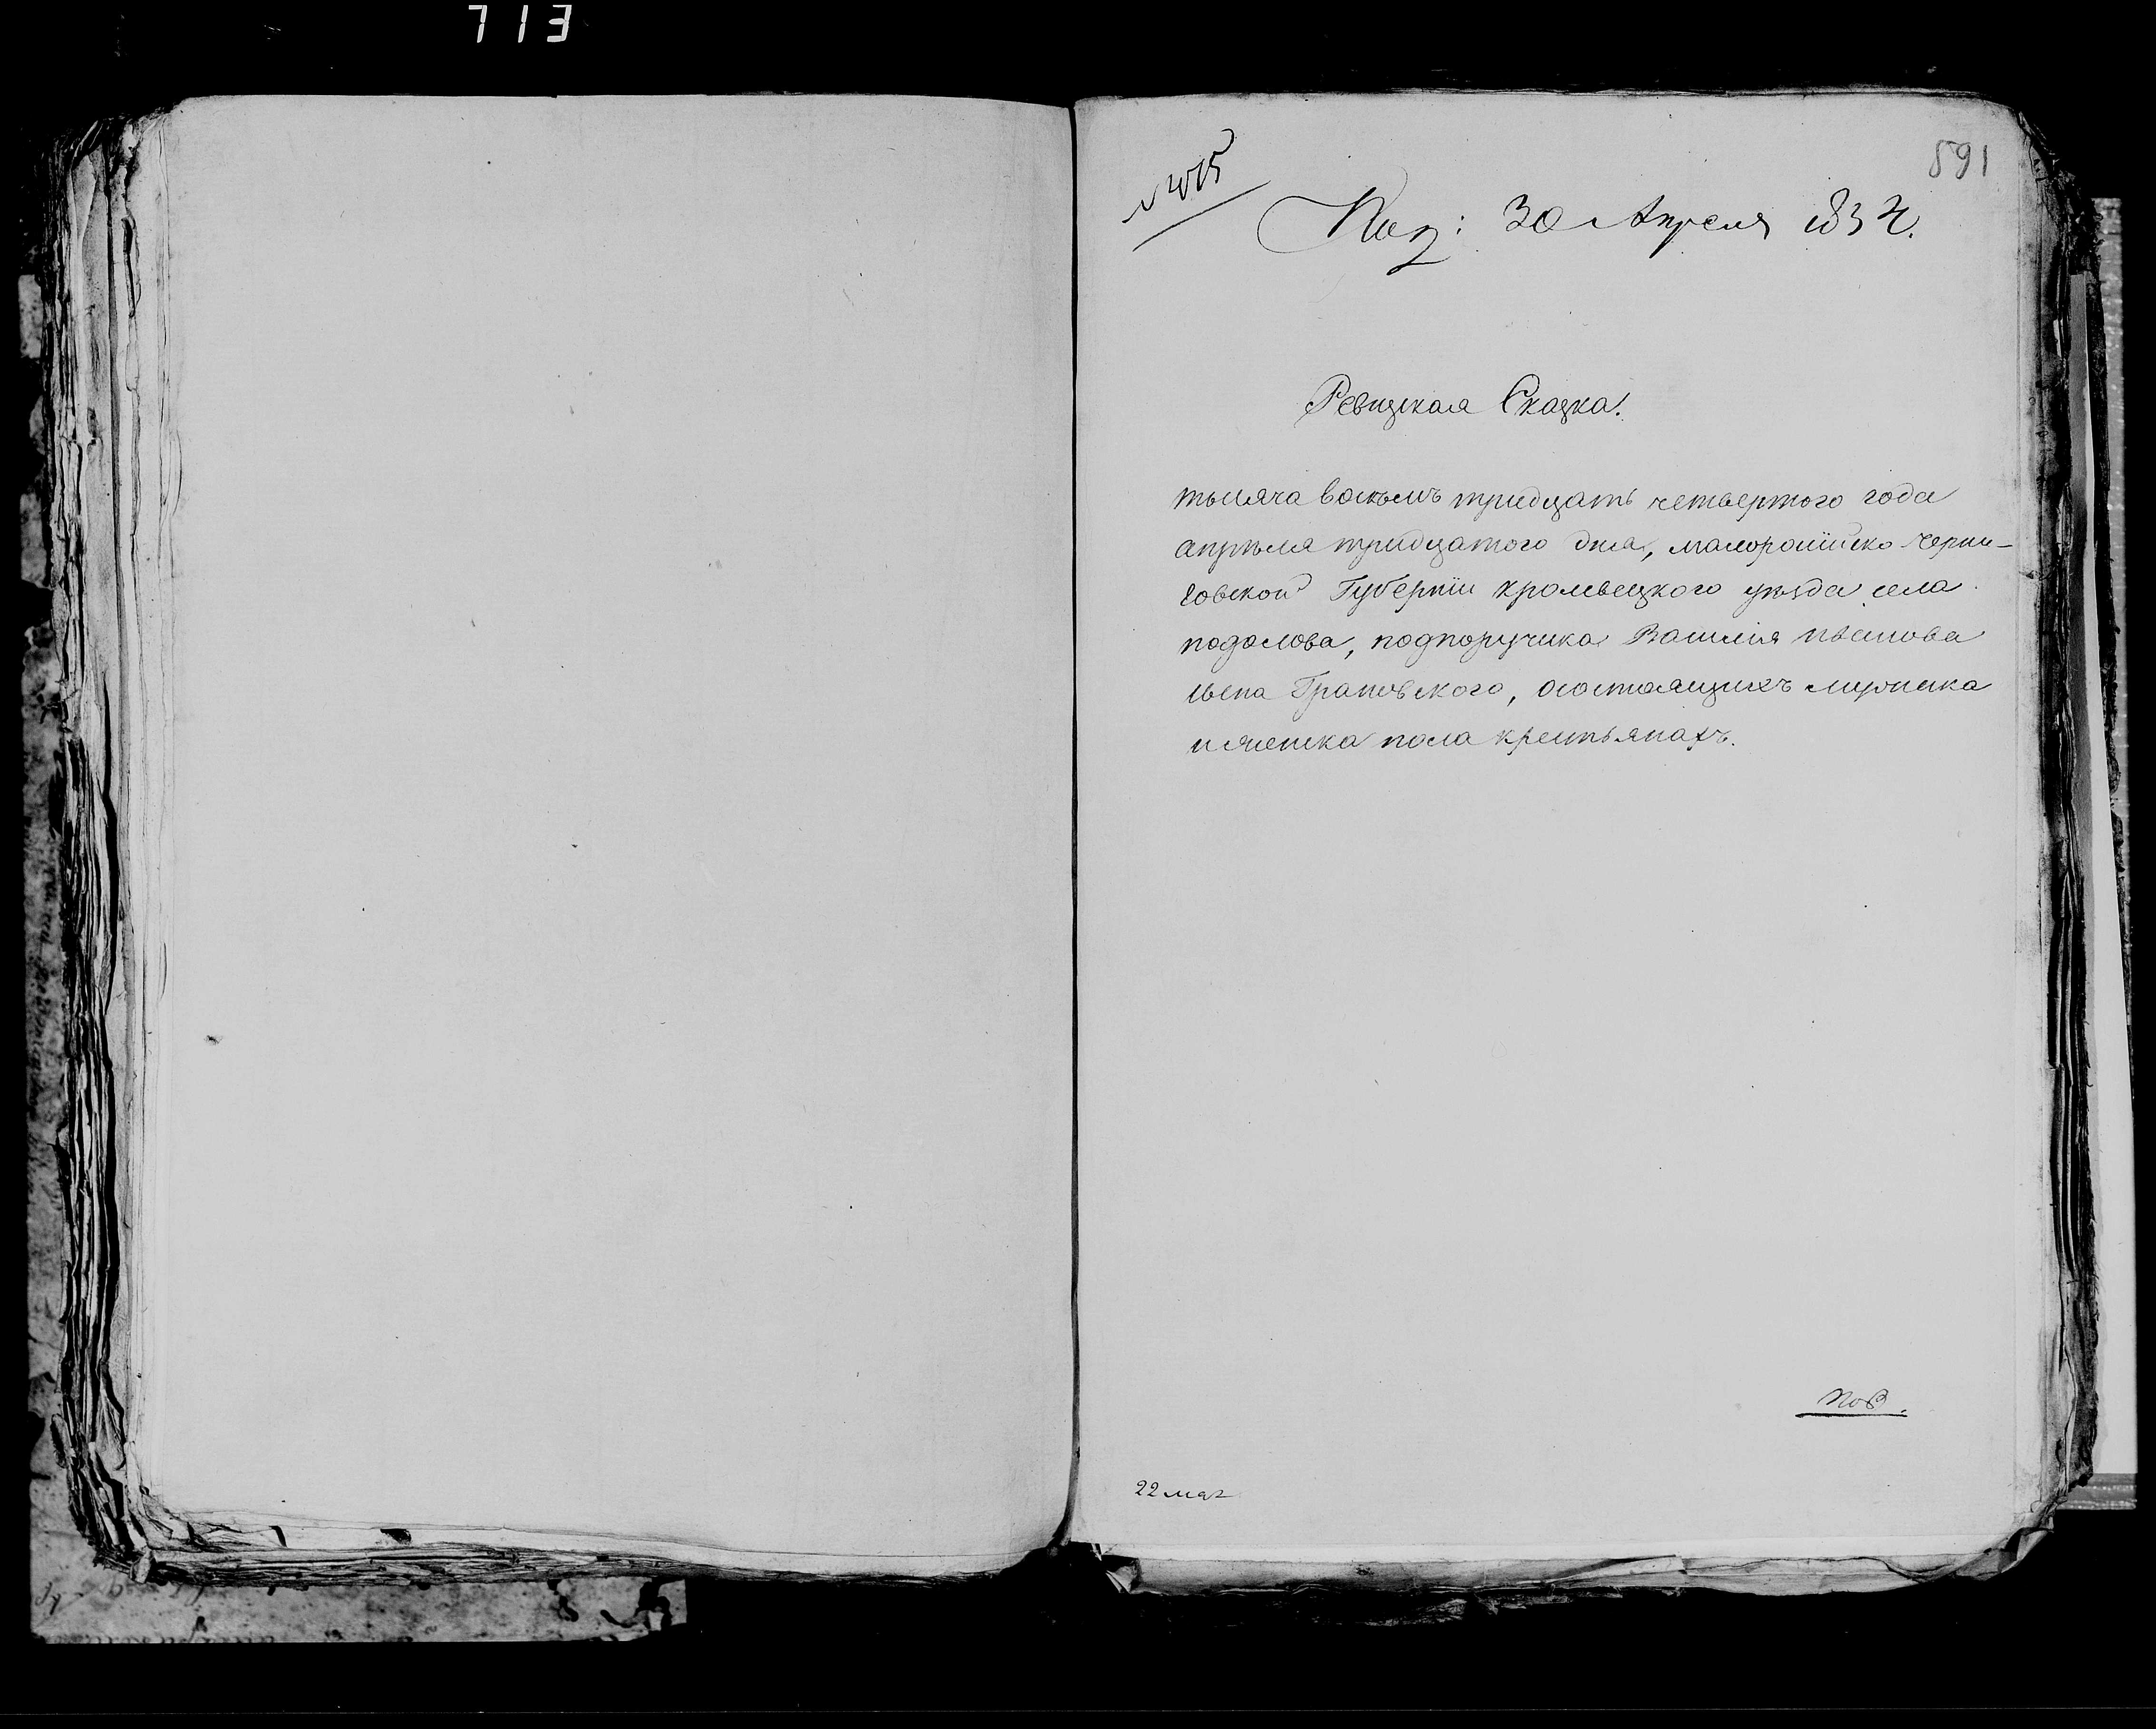 713
591
№ 205
Под: 30 Апреля 1834.
Ревизская Сказка.
тысяча восемъ тридцать четвертого года
апрѣля тридцатого дня, малороссійско черни-
говской Губерніи кролевецкого уѣзда села
подолова, подпоручика Василія иванова
сына Грановского, осостоящихъ мужеска
и женска пола крестьянахъ.
ПоВ.
22 мая